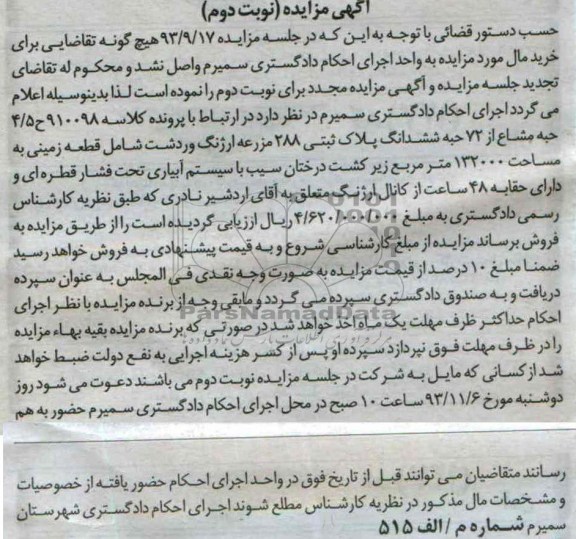 آگهی مزایده (نوبت دوم)
حسب دستور قضائی با توجه به این که در جلسه مزایده ۹۳/۹/۱۷ هیچ گونه تقاضایی برای
خرید مال مورد مزایده به واحد اجرای احکام دادگستری سمیرم واصل نشد و محکوم له تقاضای
تجدید جلسه مزایده و آگهی مزایده مجدد برای نوبت دوم را نموده است لذا بدینوسیله اعلام
می گردد اجرای احکام دادگستری سمیرم در نظر دارد در ارتباط با پرونده کلاسه ۹۱۰۰۹۸ ح ۴/۵
حبه مشاع از ۷۲ حبه ششدانگ پلاک ثبتی ۲۸۸ مزرعه ارژنگ وردشت شامل قطعه زمینی به
مساحت ۱۳۲۰۰۰ متر مربع زیر کشت درختان سیب با سیستم آبیاری تحت فشار قطره ای و
دارای حقابه ۴۸ ساعت از کانال ارژنگ متعلق به آقای اردشیر نادری که طبق نظریه کارشناس
رسمی دادگستری به مبلغ ۴/۶۲۰/۰۰۰/۰۰۰ ریال ارزیابی گردیده است را از طریق مزایده به
فروش برساند مزایده از مبلغ کارشناسی شروع و به قیمت پیشنهادی به فروش خواهد رسید
ضمنا مبلغ ۱۰ درصد از قیمت مزایده به صورت وجه نقدی فی المجلس به عنوان سپرده
دریافت و به صندوق دادگستری سپرده می گردد و مابقی وجه از برنده مزایده با نظر اجرای
احکام حداکثر ظرف مهلت یک ماه اخذ خواهد شد در صورتی که برنده مزایده بقیه بهاء مزایده
را در ظرف مهلت فوق نپردازد سپرده او پس از کسر هزینه اجرایی به نفع دولت ضبط خواهد
شد از کسانی که مایل به شرکت در جلسه مزایده نوبت دوم می باشند دعوت می شود روز
دوشنبه مورخ ۹۳/۱۱/۶ ساعت ۱۰ صبح در محل اجرای احکام دادگستری سمیرم حضور به هم
رسانند متقاضیان می توانند قبل از تاریخ فوق در واحد اجرای احکام حضور یافته از خصوصیات
و مشخصات مال مذکور در نظریه کارشناس مطلع شوند اجرای احکام دادگستری شهرستان
سمیرم شماره م / الف ۵۱۵
ParsNamadData